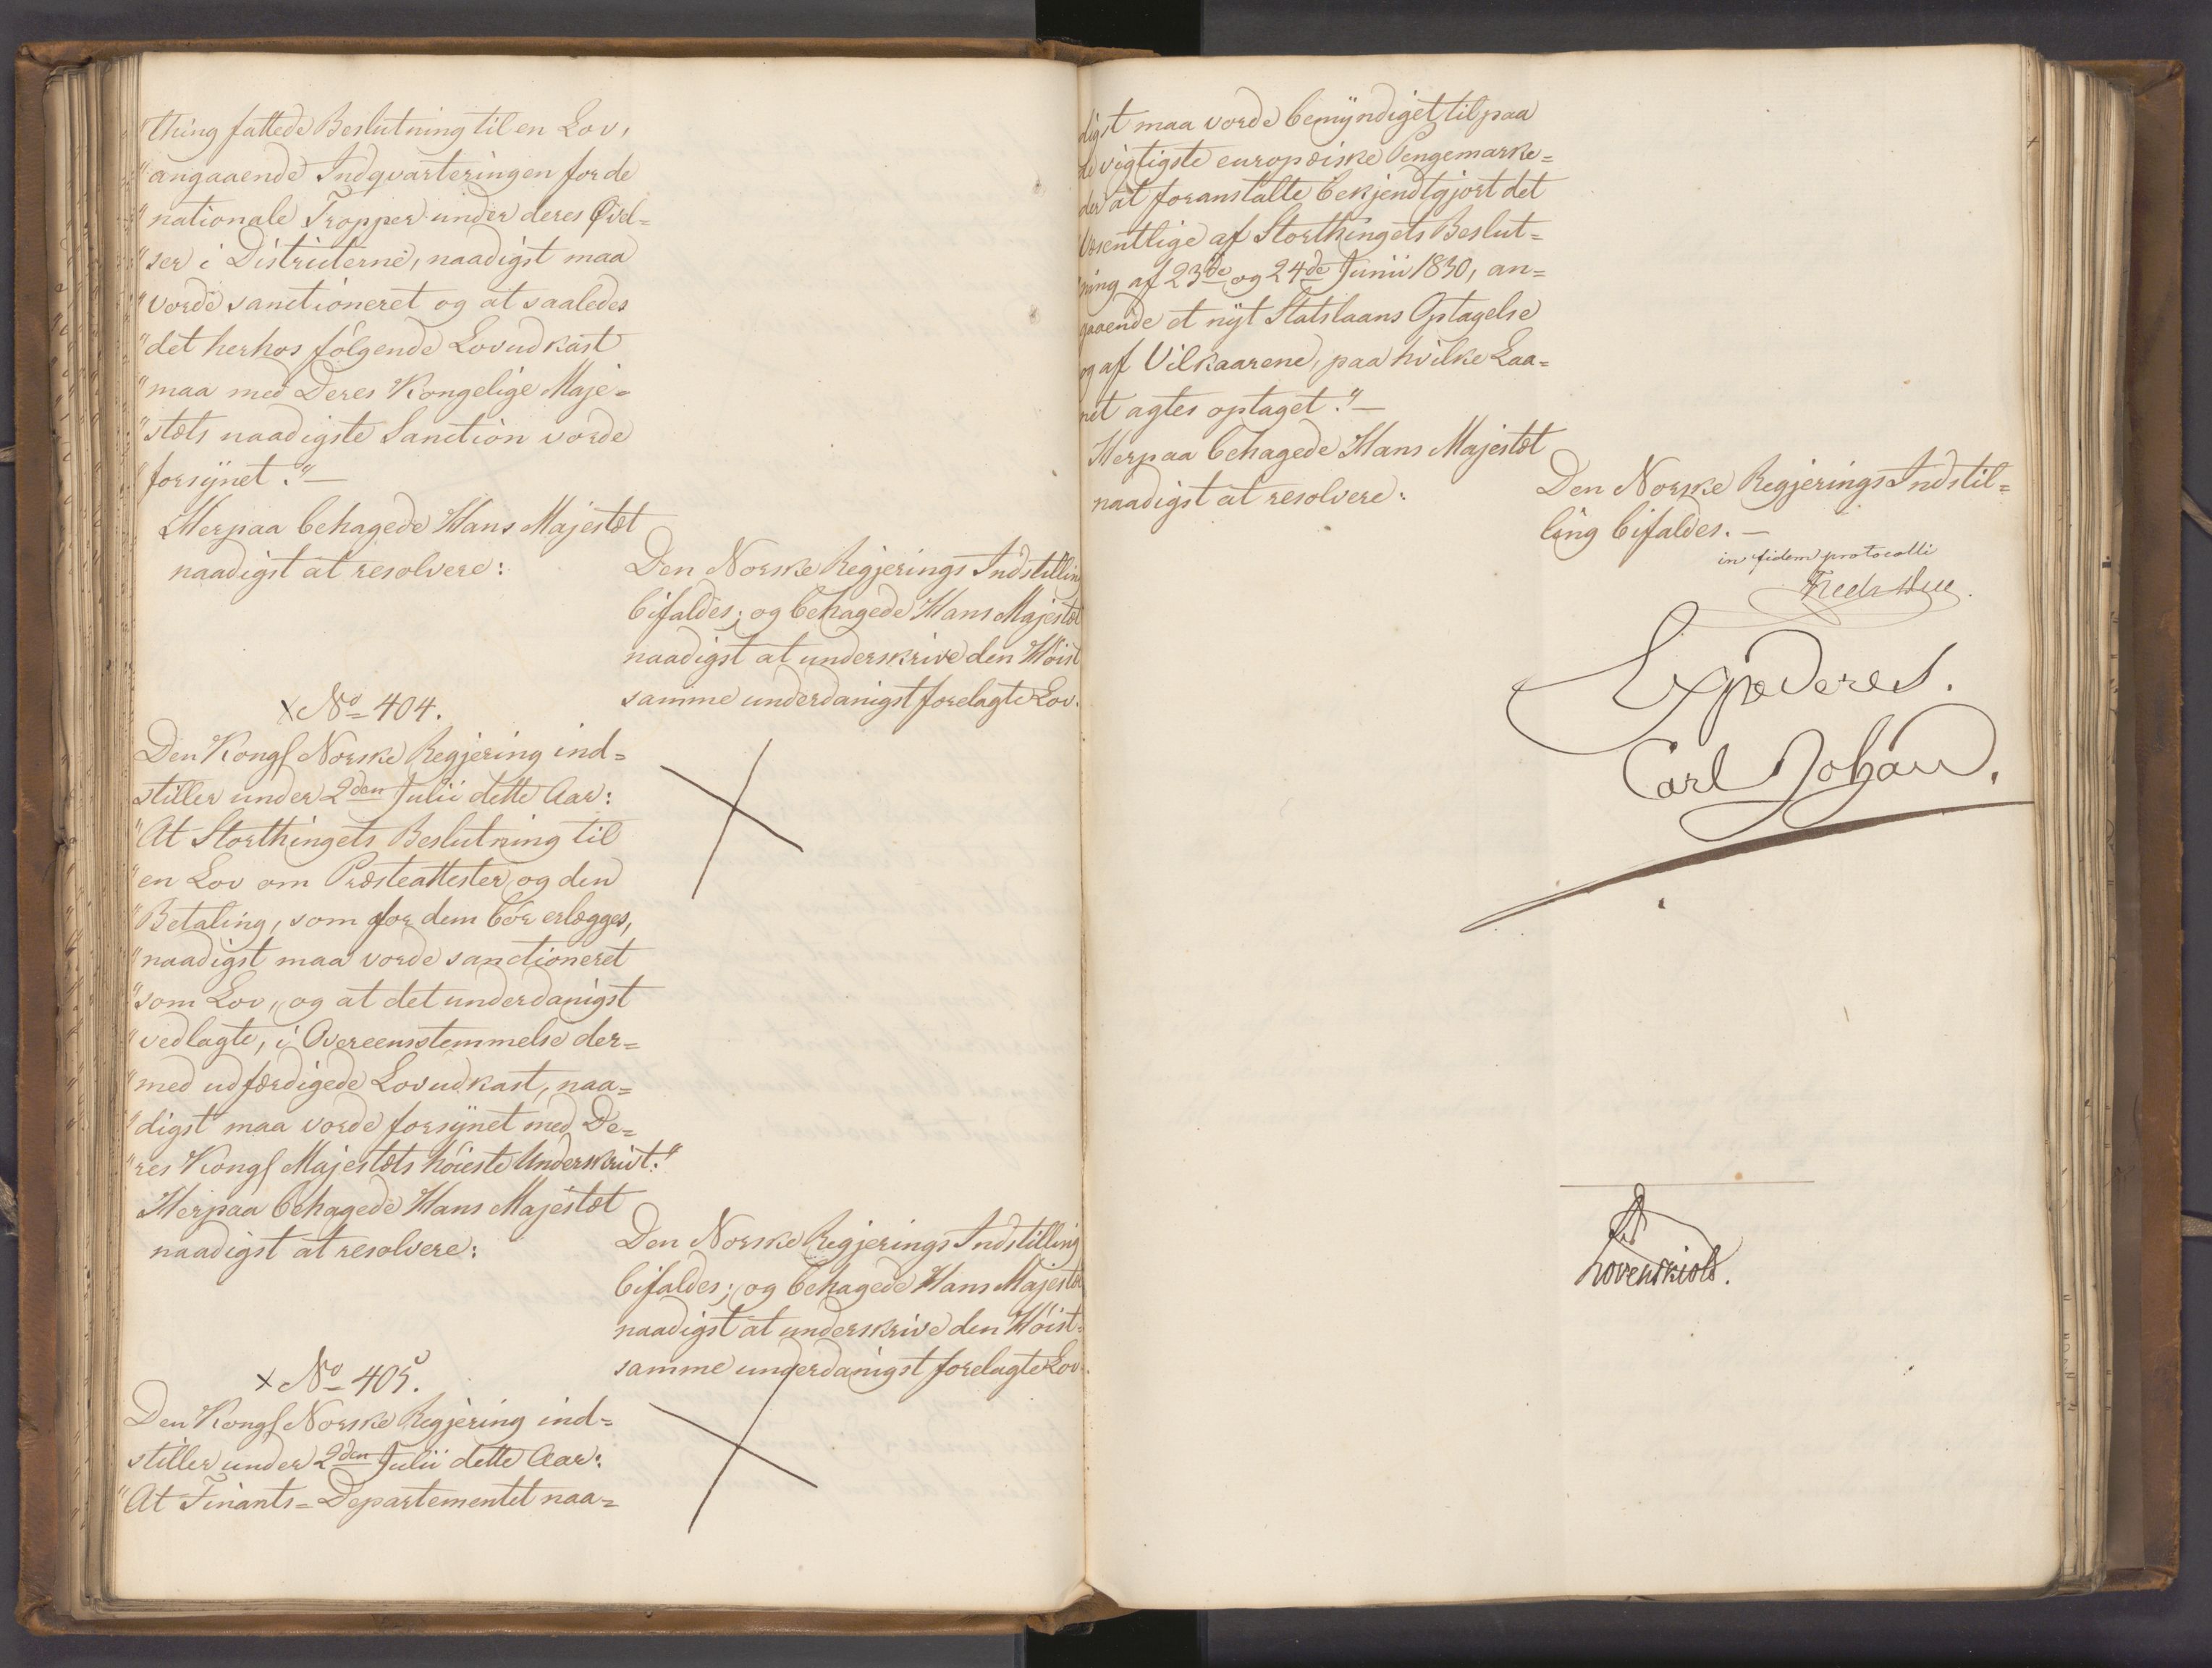 "thing fattede Beslutning til en Lov,
"angaaende Indqvarteringen for de
"nationale Tropper under deres Øvel=
"ser i Districterne, naadigst maa
"vorde sanctioneret og at saaledes
"det herhos følgende Lovudkast
"maa med Deres Kongelige Maje=
"stæts naadigste Sanction vorde
"forsynet."—
Herpaa behagede Hans Majestæt
naadigst at resolvere:
Den Norske Regjerings Indstilling
bifaldes; og behagede Hans Majestæt
naadigst at underskrive den Høist
samme underdanigst forelagte Lov.
× No 404.
Den Kongl Norske Regjering ind=
stiller under 2den Julii dette Aar:
"At Storthingets Beslutning til
"en Lov om Præsteattester og den
"Betaling, som for dem bör erlægges,
"naadigst maa vorde sanctioneret
"som Lov, og at det underdanigst
"vedlagte, i Overeensstemmelse der=
"med udfærdigede Lovudkast, naa=
"digst maa vorde forsynet med De=
"res Kongl Majestæts höieste Underskrivt."
Herpaa behagede Hans Majestæt
naadigst at resolvere:
Den Norske Regjerings Indstilling
bifaldes; og behagede Hans Majestæt
naadigst at underskrive den Høist=
samme underdanigst forelagte Lov.
× No 405.
Den Kongl Norske Regjering ind=
stiller under 2den Julii dette Aar:
"At Finants=Departementet naa=
digst maa vorde bemyndiget til paa
de vigtigste europæiske Pengemarke=
der at foranstalte bekjendtgjort det
Væsentlige af Storthingets Beslut=
ning af 23de og 24de Junii 1830, an=
gaaende et nyt Statslaans Optagelse
og af Vilkaarene, paa hvilke Laa=
net agtes optaget."—
Herpaa behagede Hans Majestæt
naadigst at resolvere:
Den Norske Regjerings Indstil=
ling bifaldes.—
in fidem protocolli
Fredr Due.
Expederes.
Carl Johan.
Løvenskiold.